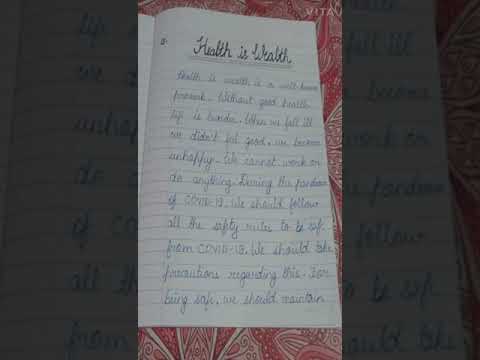 VITA
Health is Wealth
Health is wealth is a well-known
proverb. Without good health
life is burden. When we fall ill
we didn't feel good, we become
unhappy. We cannot work or
do anything. During the pandemic
of COVID-19. We should follow
all the safty rules to be safe
from COVID-19. We should take
precautions regarding this. For
being safe, we should maintain